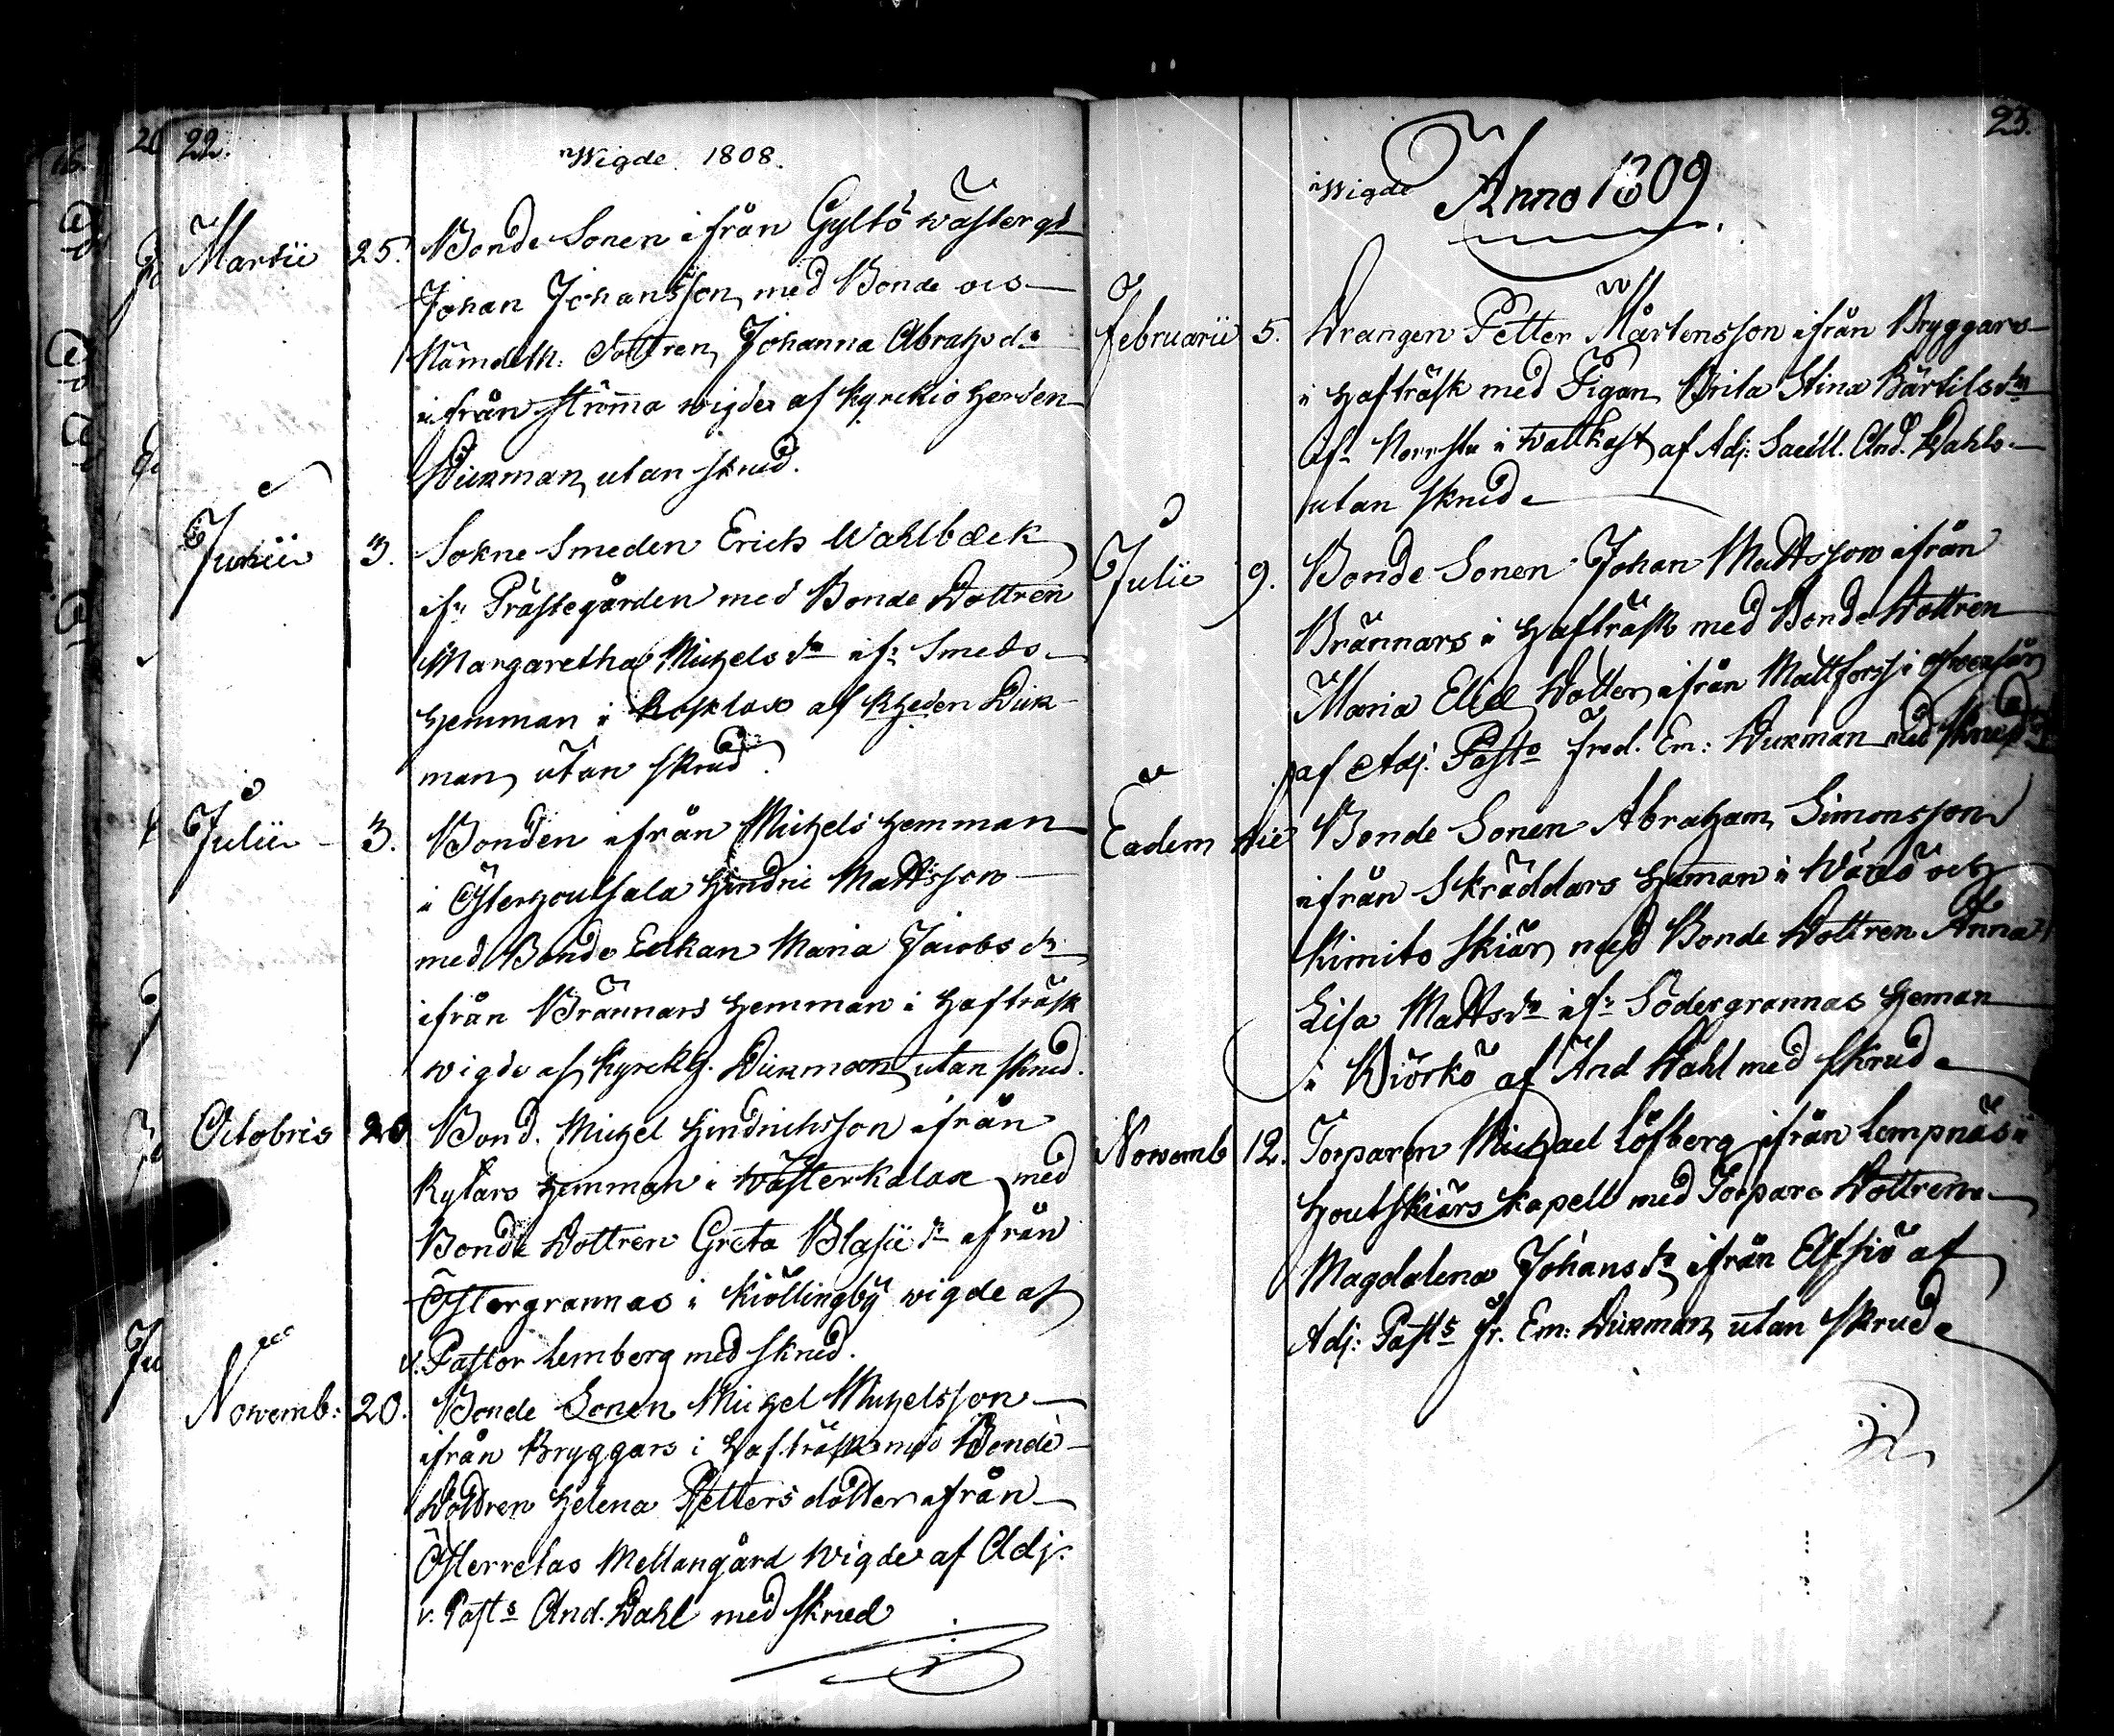 22.
Wigde 1808.
Martii 25. Bonde Sonen ifrån Gyltö Wästergd
Johan Johansson, med Bonde och
Nämdem: Dottren, Johanna Abrahsdr
ifrån Strömma wigde af Kyrckio Herden
Wikman, utan skrud.
Junii 3. Sokne Smeden Erich Wahlbäck
ifn Prästegården med Bonde Dottren
Margaretha Michelsdr ifn Smeds
Hemman i Rosklax af KHeden Wik-
man, utan skrud.
Julii 3. Bonden ifrån Michels Hemman
i Österhoutsala Hindric Mattsson
med Bonde Enkan Maria Jacobsdr
ifrån Brännars Hemman i Hafträsk
wigde af KyrckH. Wikman utan skrud.
Octobris 20 Bond. Michel Hindrichsson ifrån
Rylars Hemman i Wästerkalax med
Bonde Dottren Greta Blasiidr ifrån
Östergrannas i Kiöllingby wigde af
v. Pastor Lemberg med skrud.
Novemb: 20. Bonde Sonen Michel Michelsson
ifrån Bryggars i Hafträsk med Bonde
Dottren Helena Pettersdotter ifrån
Österretas Mellangård wigde af Adj.
v. Pasts And. Dahl med skrud
23.
Wigde Anno 1809
Februarii 5. Drängen Petter Mårtensson ifrån Bryggars
i Hafträsk med Pigan Brita Stina Bärtilsdr
ifn Norrstu i Wattkast af Adj: Sacell. And. Dahl
utan skrud
Julii 9. Bonde Sonen Johan Mattsson ifrån
Brännars i Hafträsk med Bonde Dottren
Maria Elied Dotter, ifrån Mattfors i
af Adj. Pasto Fred. Em: Wikman med skrud
Eadem die Bonde Sonen Abraham Simonsson
ifrån Skräddars Heman i Wänö och
Kimito Skiär, med Bonde Dottren Anna
Lisa Mattsdr ifn Södergrannas Heman
i Biörkö af And Dahl med skrud
Novemb 12. Torparen Michael Löfberg ifrån Lempnäs i
Houtskiärs Kapell med Torpare Dottren
Magdalena Johansdr ifrån Elfsiö af
Adj: Pasts Fr. Em: Wikman, utan skrud